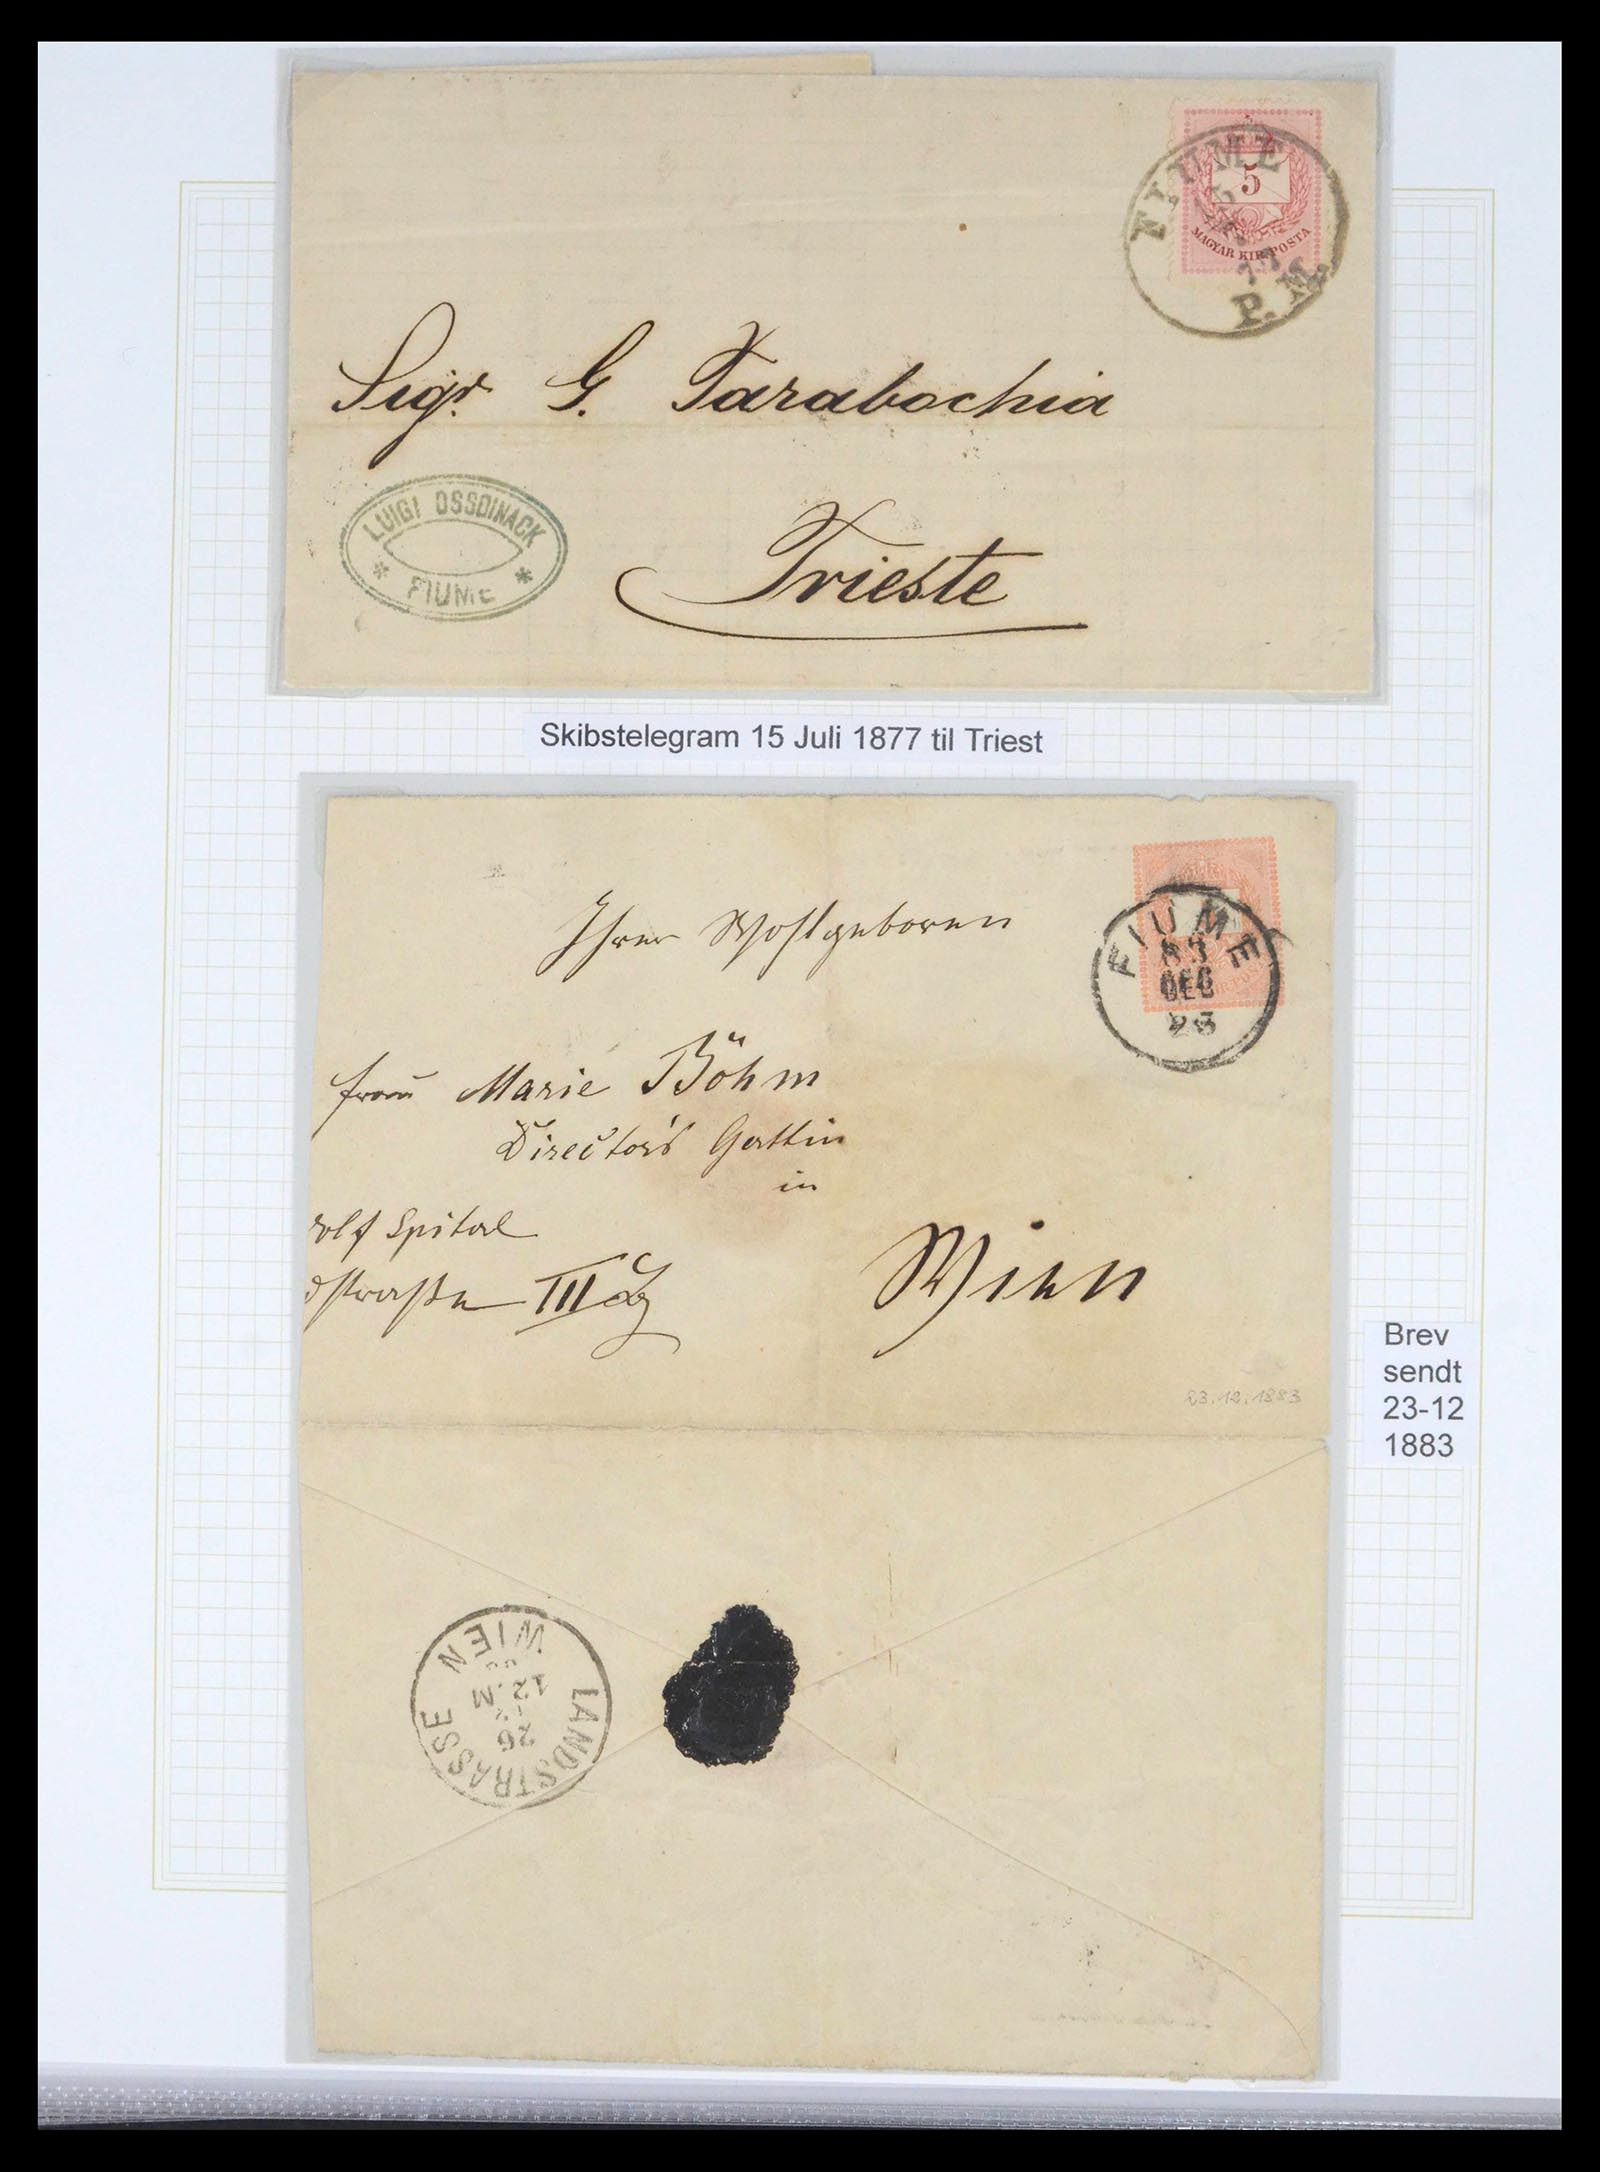 5
MAGYAR KIR. POSTA
FIUME
77
P. M.
Sigr. G. Tarabochia
LUIGI OSSOINACK
* FIUME *
Trieste
Skibstelegram 15 Juli 1877 til Triest
Ihrer Wohlgeboren
FIUME
83
DEC
23
Frau Marie Böhm
Director's Gattin
in
dolf Spital
dstraße III
Wien
Brev
sendt
23-12
1883
23.12.1883
WIEN
12.M
26
LANDSTRASSE